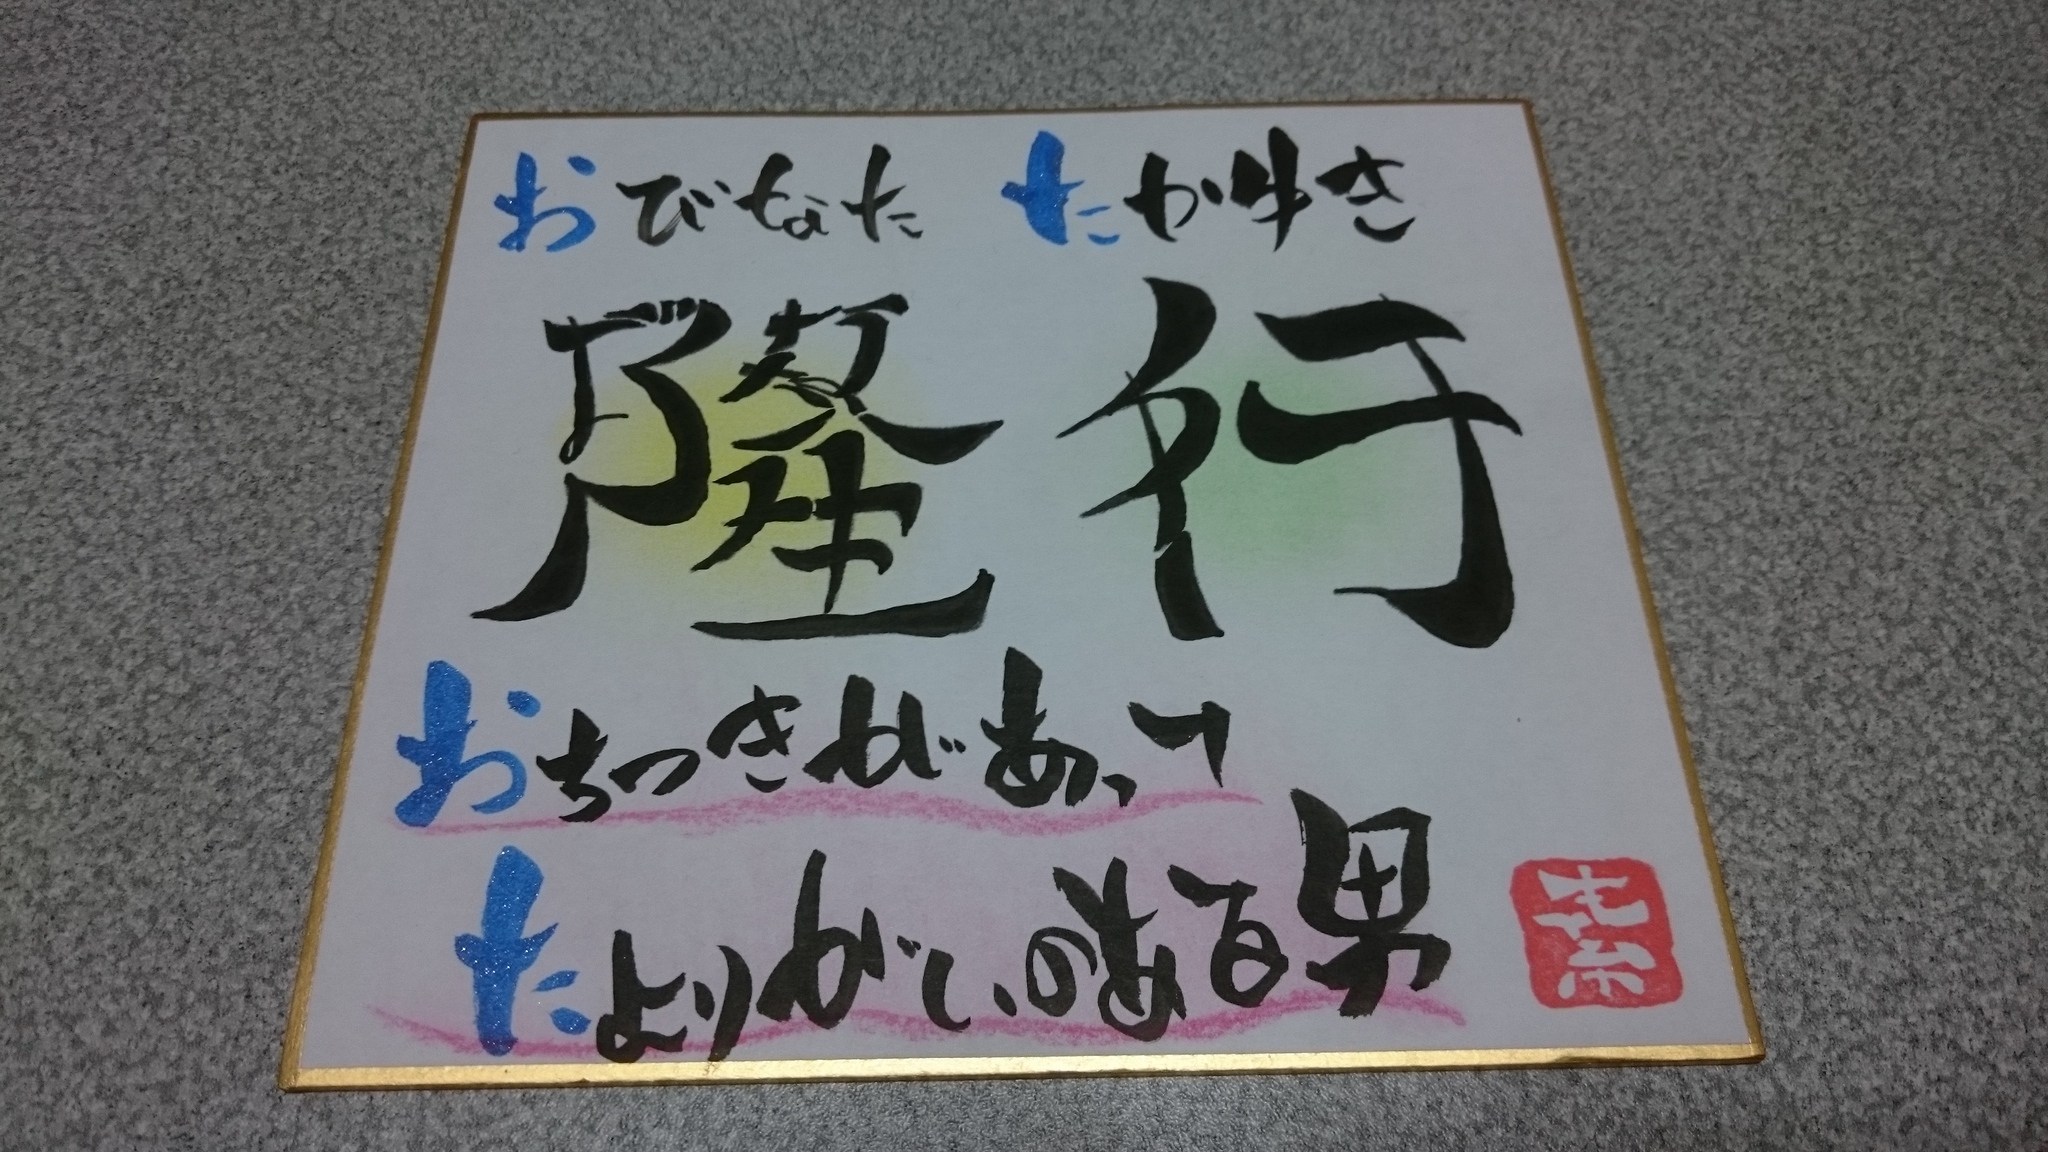 おびなた たかゆき
隆行
おちつきがあって
たよりがいのある男